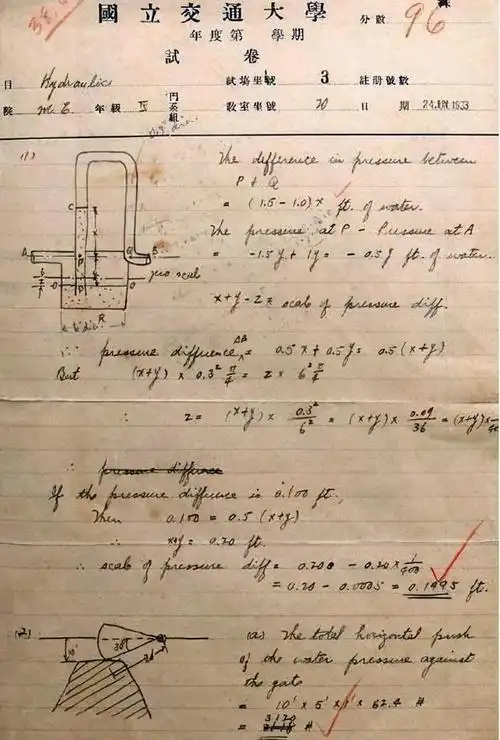 國立交通大學
分數 96
年度第 學期
試卷
目 Hydraulics 試場坐號 3 註册號數
院 M.E. 年級 IV 教室坐號 20 日期 24.JUN.1933
(1)
The difference in pressure between
P + Q
= (1.5-1.0)x ft. of water.
The pressure at P - Pressure at A
= -1.5y + 1y = -0.5y ft. of water.
zero scale
x+y-z = scale of pressure diff.
∴ pressure difference AB = 0.5x + 0.5y = 0.5(x+y)
But (x+y) x 0.3² π/4 = z x 6² π/4
∴ z = (x+y) x 0.3²/6² = (x+y) x 0.09/36 = (x+y) x
∴ pressure difference
If the pressure difference is 0.100 ft.,
Then 0.100 = 0.5 (x+y)
∴ x+y = 0.20 ft.
∴ scale of pressure diff = 0.200 - 0.20 x 1/400
= 0.20 - 0.0005 = 0.1995 ft.
(2)
30°
(a) The total horizontal push
of the water pressure against
the gate
= 10' x 5' x 1' x 62.4 #
= 3120 #